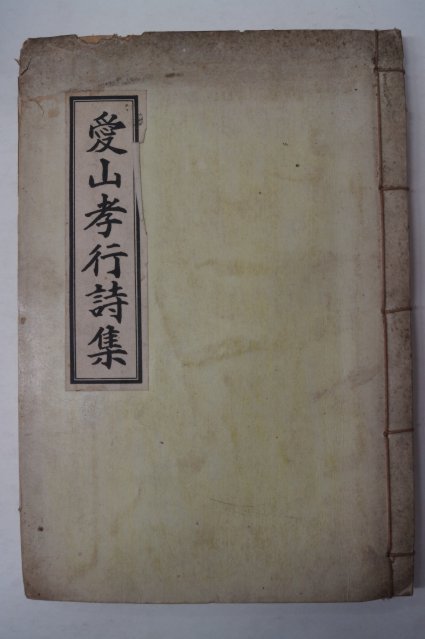 愛山孝行詩集